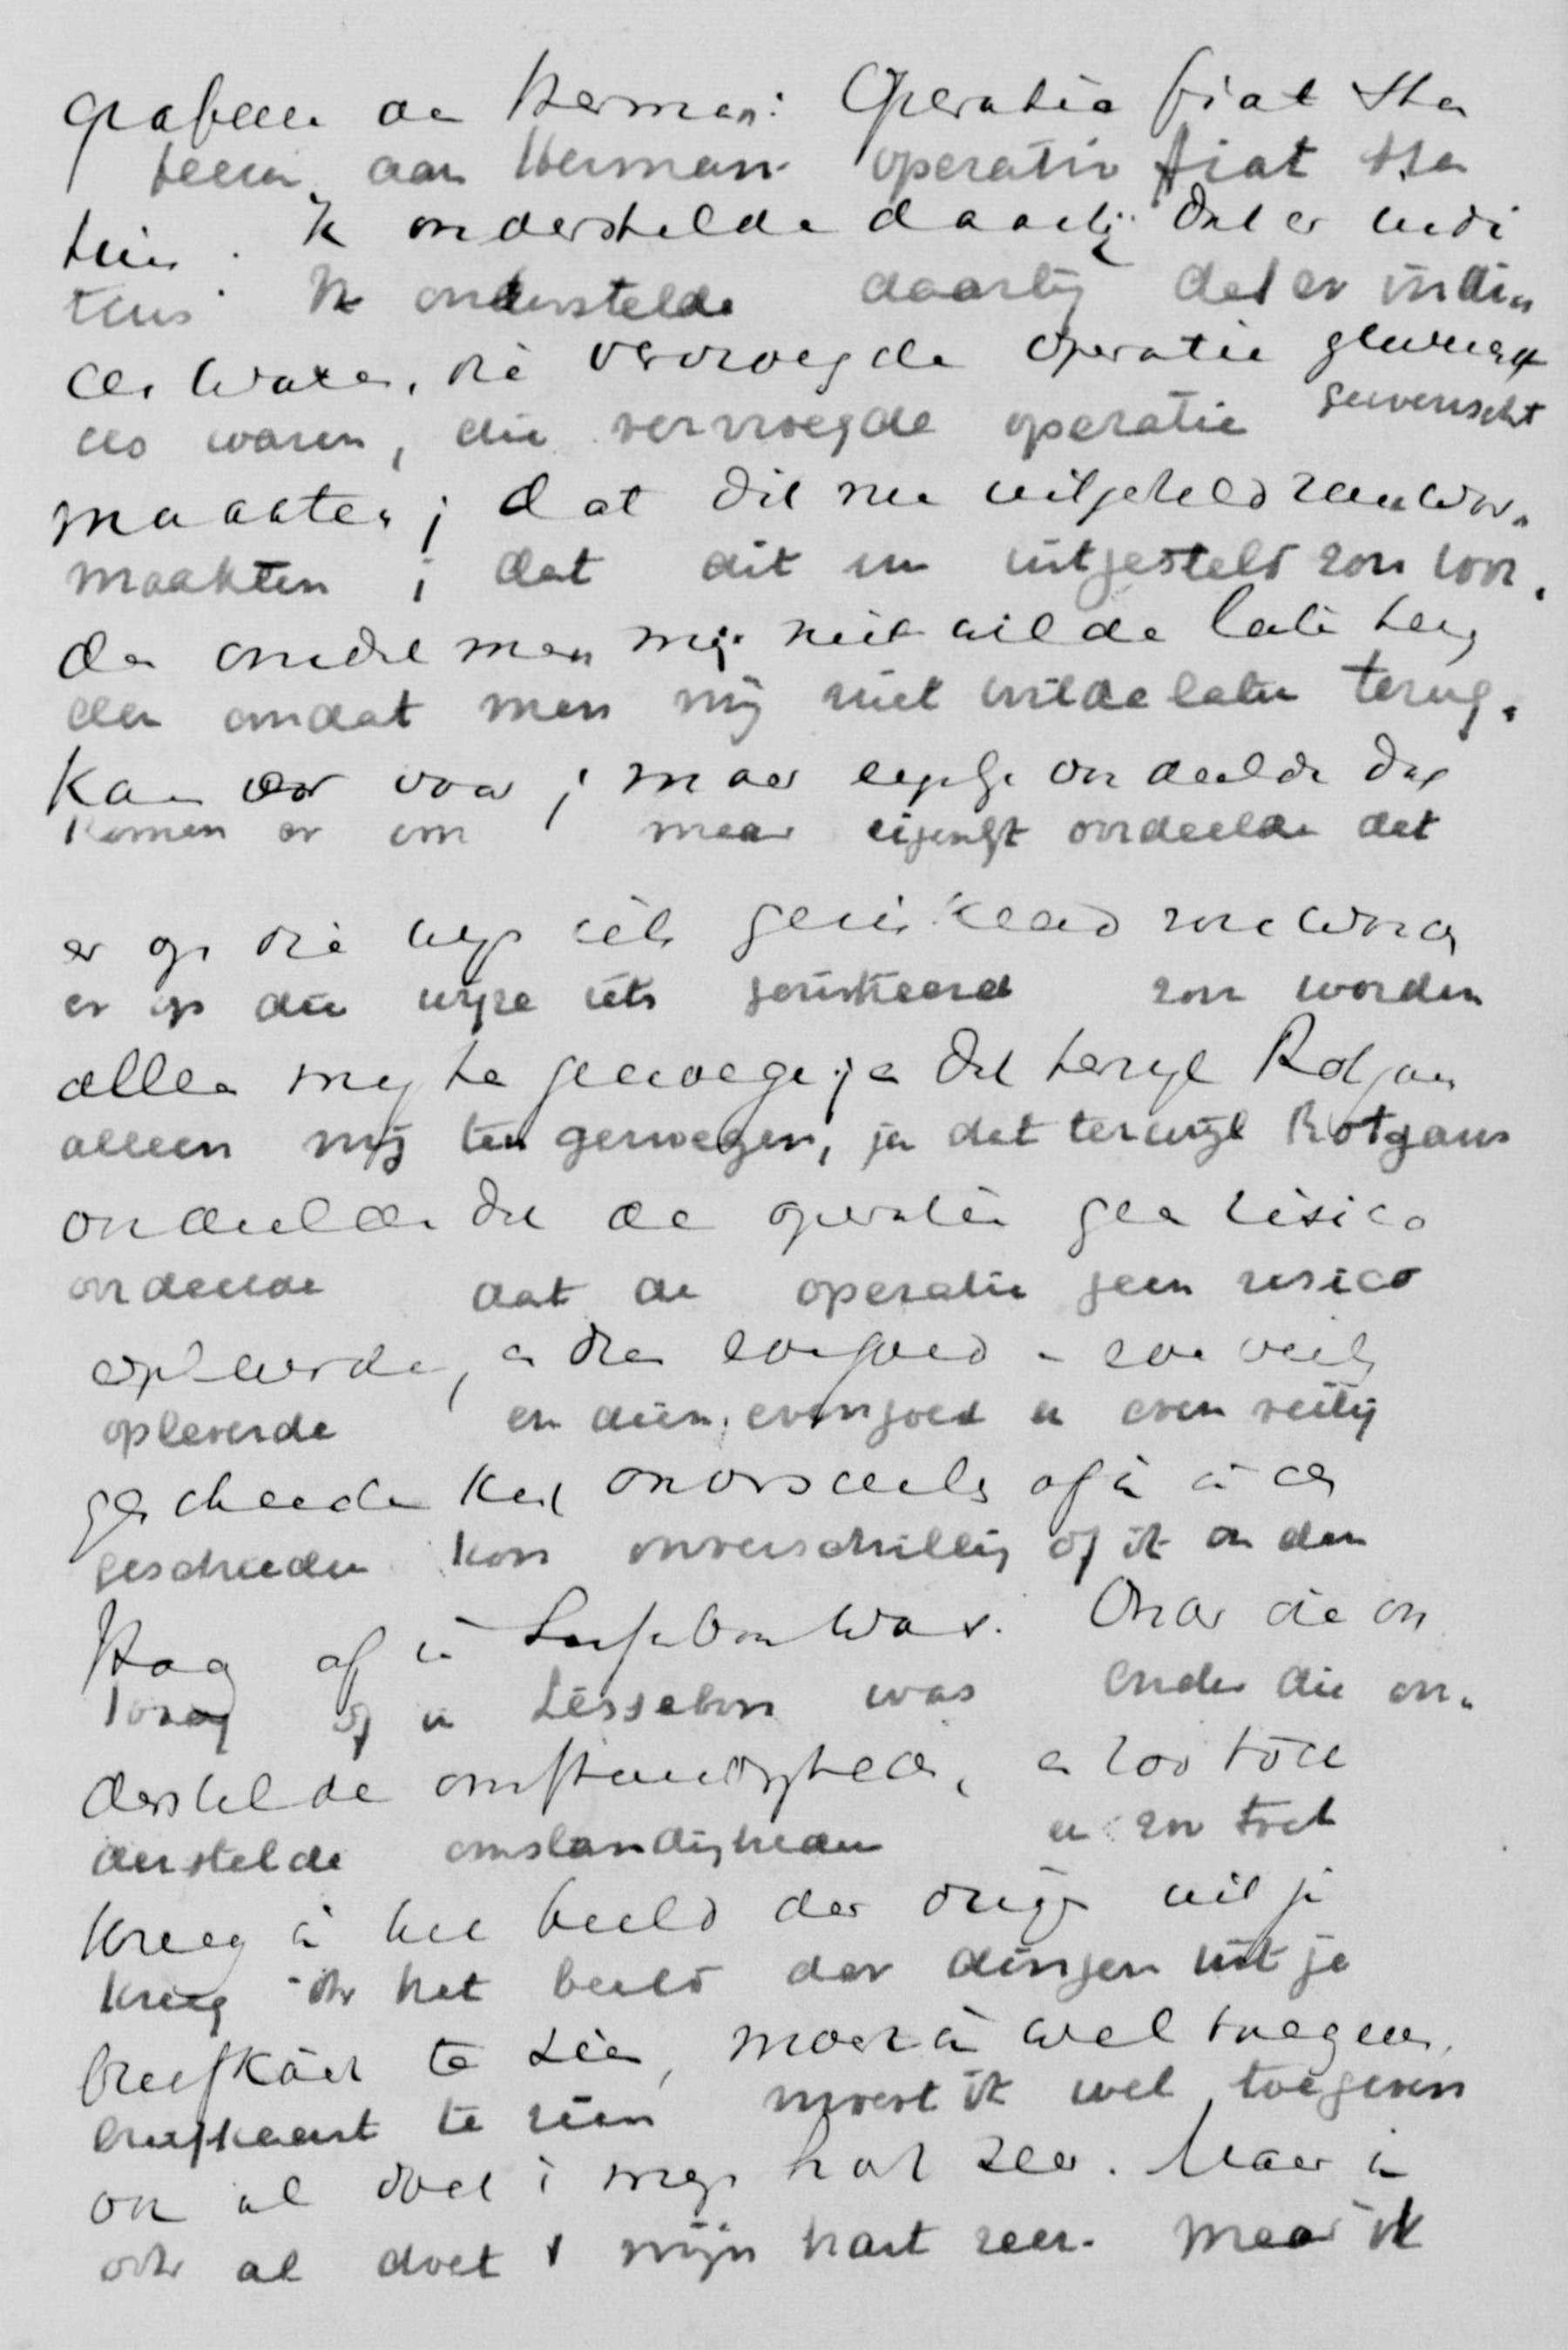 grafeeren aan Herman: Operatie fiat sta
feeren aan Herman operatie fiat sta
tim. Ik onderstelde daarbij dat er indi
tim Ik onderstelde daarbij dat er indi
cas waren, die vervroegde operatie gewenscht
cas waren, die vervroegde operatie gewenscht
maakten; dat dit nu uitgesteld zou wor„
maakten; dat dit nu uitgesteld zou wor„
den omdat men mij niet wilde laten terug
den omdat men mij niet wilde laten terug„
komen er voor; maar eigenlijk oordeelde dat
komen er om maar eigenlijk oordeelde dat
er op die wijze iets geriskeerd zou worden
er op die wijze iets geriskeerd zou worden
alleen mij te genoegen; ja dat terwijl Rotgans
alleen mij ten genoegen, ja dat terwijl Rotgans
oordeelde dat de operatie geen risico
oordeelde dat de operatie geen risico
opleverde, en dien evengoed en even veilig
opleverde en dien evengoed en even veilig
geschieden kon onverschillig of ik in den
geschieden kon onverschillig of ik in den
Haag of in Lissabon was. Onder die on
Haag of in Lissabon was Onder die on„
derstelde omstandigheden, en zoo toch
derstelde omstandigheden en zoo toch
kreeg ik het beeld der dingen uit je
kreeg ik het beeld der dingen uit je
briefkaart te zien, moest ik wel toegeven,
briefkaart te zien moest ik wel toegeven
ook al doet 't mijn hart zeer. Maar ik
ook al doet 't mijn hart zeer. Maar ik